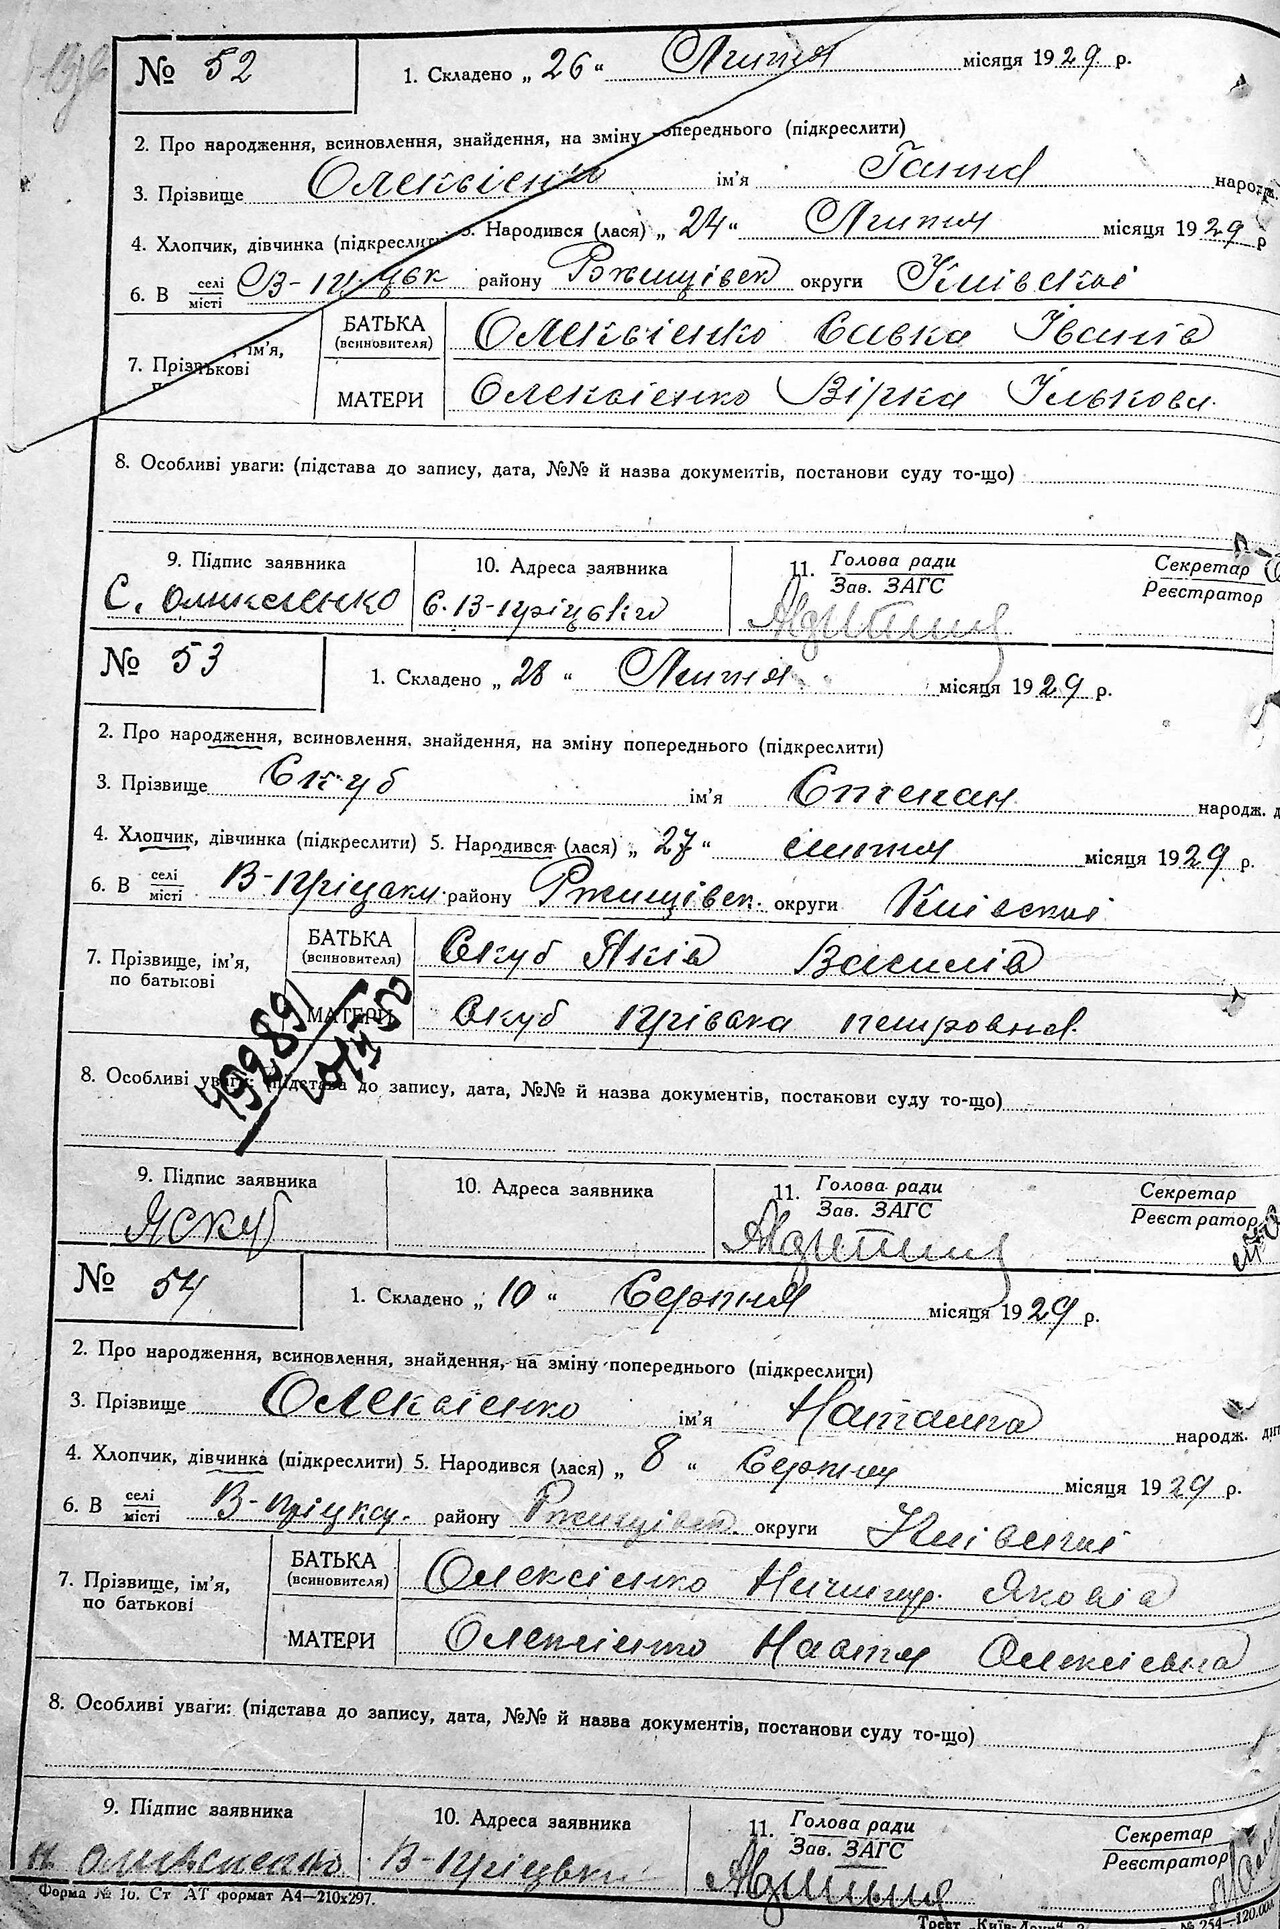 № 52
1. Складено „ 26 “ Липня місяця 1929 р.
2. Про народження, всиновлення, знайдення, на зміну попереднього (підкреслити)
3. Прізвище Олексієнко ім'я Ганна народж.
4. Хлопчик, дівчинка (підкреслити 5. Народився (лася) „ 24 “ Липня місяця 1929 р
6. В селі місті району Ржищівськ округи Київської
БАТЬКА (всиновителя) Олексієнко Савка Іванів
7. Прізв ім'я, тькові
МАТЕРИ Олексієнко Вірка Ількова
8. Особливі уваги: (підстава до запису, дата, №№ й назва документів, постанови суду то-що)
9. Підпис заявника 10. Адреса заявника 11. Голова ради Зав. ЗАГС Секретар Реєстратор
С. Оликсіенко
№ 53
1. Складено „ 28 “ Липня місяця 1929 р.
2. Про народження, всиновлення, знайдення, на зміну попереднього (підкреслити)
3. Прізвище Скуб ім'я Степан народж. д
4. Хлопчик, дівчинка (підкреслити) 5. Народився (лася) „ 27 “ липня місяця 1929 р.
6. В селі місті В-Пріцьки району Ржищівськ. округи Київської
БАТЬКА (всиновителя) Скуб Яків Василів
7. Прізвище, ім'я, по батькові
МАТЕРИ Скуб петровна
8. Особливі уваги: (підстава до запису, дата, №№ й назва документів, постакови суду то-що)
9. Підпис заявника 10. Адреса заявника 11. Голова ради Зав. ЗАГС Секретар Реєстратор
ЯСкуб
№ 54
1. Складено „ 10 “ Серпня місяця 1929 р.
2. Про народження, всиновлення, знайдення, на зміну попереднього (підкреслити)
3. Прізвище Олексієнко ім'я Наталка народж. діт
4. Хлопчик, дівчинка (підкреслити) 5. Народився (лася) „ 8 “ Серпня місяця 1929 р.
6. В селі місті району Ржищівськ. округи Київської
БАТЬКА (всиновителя) Олексієнко Ничипур. Яковів
7. Прізвище, ім'я, по батькові
МАТЕРИ Олексієнко Настя Олексієвна
8. Особливі уваги: (підстава до запису, дата, №№ й назва документів, постанови суду то-що)
9. Підпис заявника 10. Адреса заявника 11. Голова ради Зав. ЗАГС Секретар Реєстратор
В-Пріцьки
Форма № 1б. Ст АТ формат А4—210х297.
Трест „Київ-Друк“ № 254—120.000